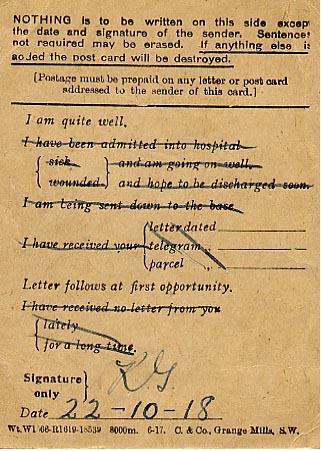 NOTHING is to be written on this side except
the date and signature of the sender. Sentences
not required may be erased. If anything else is
added the post card will be destroyed.
[Postage must be prepaid on any letter or post card
addressed to the sender of this card.]
I am quite well.
I have been admitted into hospital
sick and am going on well.
wounded and hope to be discharged soon.
I am being sent down to the base
letter dated
I have received your telegram „
parcel „
Letter follows at first opportunity.
I have received no letter from you
lately
for a long time.
Signature
only
KG.
Date 22-10-18
Wt.W1566-R1619-18539 8000m. 6-17. C. & Co., Grange Mills, S.W.